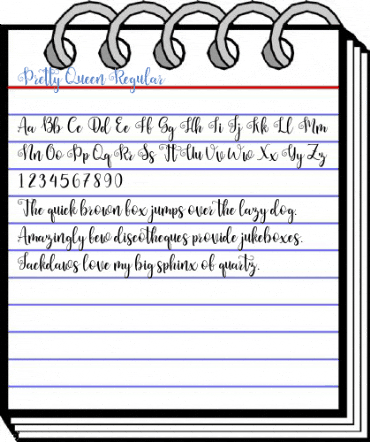 Pretty Queen Regular
Aa Bb Cc Dd Ee Ff Gg Hh Ii Jj Kk Ll Mm
Nn Oo Pp Qq Rr Ss Tt Uu Vv Ww Xx Yy Zz
1 2 3 4 5 6 7 8 9 0
The quick brown fox jumps over the lazy dog.
Amazingly few discotheques provide jukeboxes.
Jackdaws love my big sphinx of quartz.